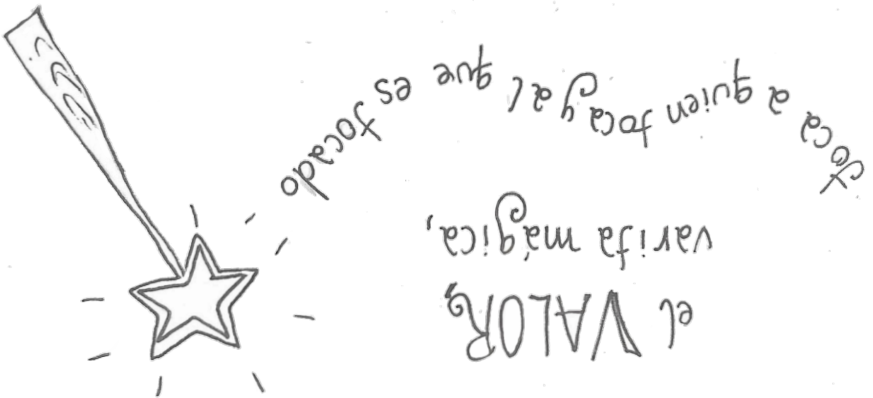 el VALOR,
varita mágica,
toca a quien toca y al que es tocado